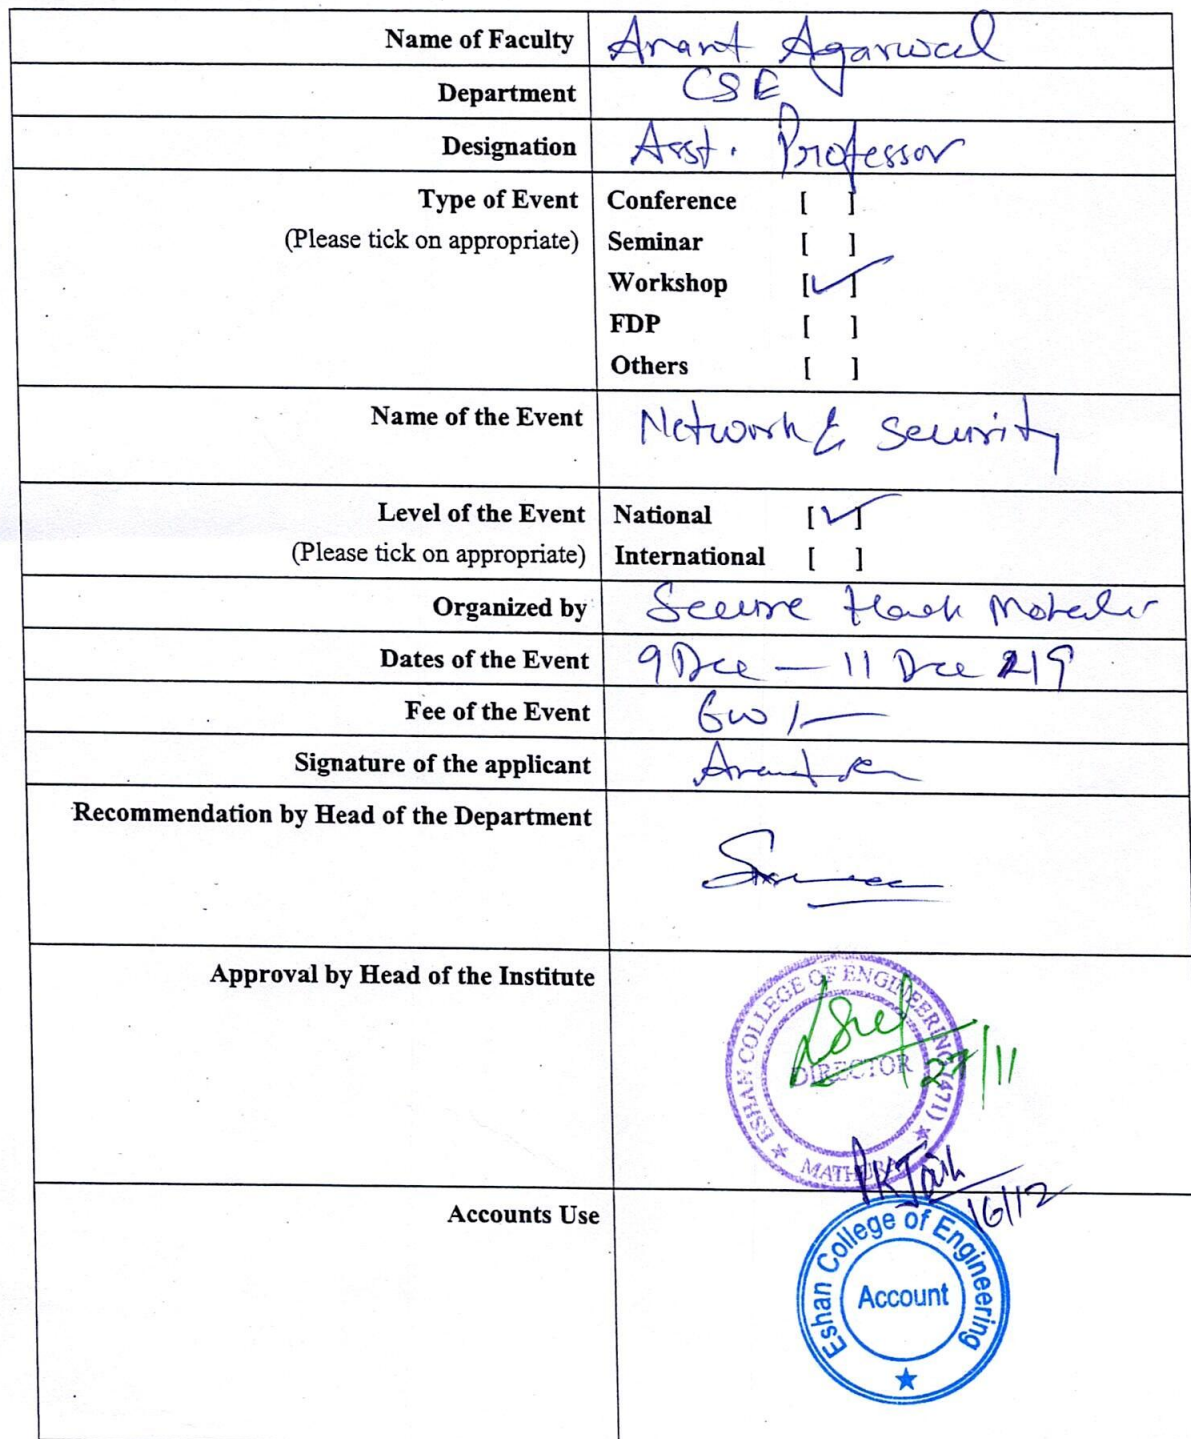 Name of Faculty Anant Agarwal
Department CSE
Designation Asst. Professor
Type of Event Conference [ ]
(Please tick on appropriate) Seminar [ ]
Workshop [✓]
FDP [ ]
Others [ ]
Name of the Event Network & Security
Level of the Event National [✓]
(Please tick on appropriate) International [ ]
Organized by Secure
Dates of the Event 9 Dec — 11 Dec 219
Fee of the Event 600/—
Signature of the applicant
Recommendation by Head of the Department
Approval by Head of the Institute
ESHAN COLLEGE OF ENGINEERING (471)
DIRECTOR
27/11
MATHURA
PKJain
16/12
Accounts Use
Eshan College of Engineering
Account